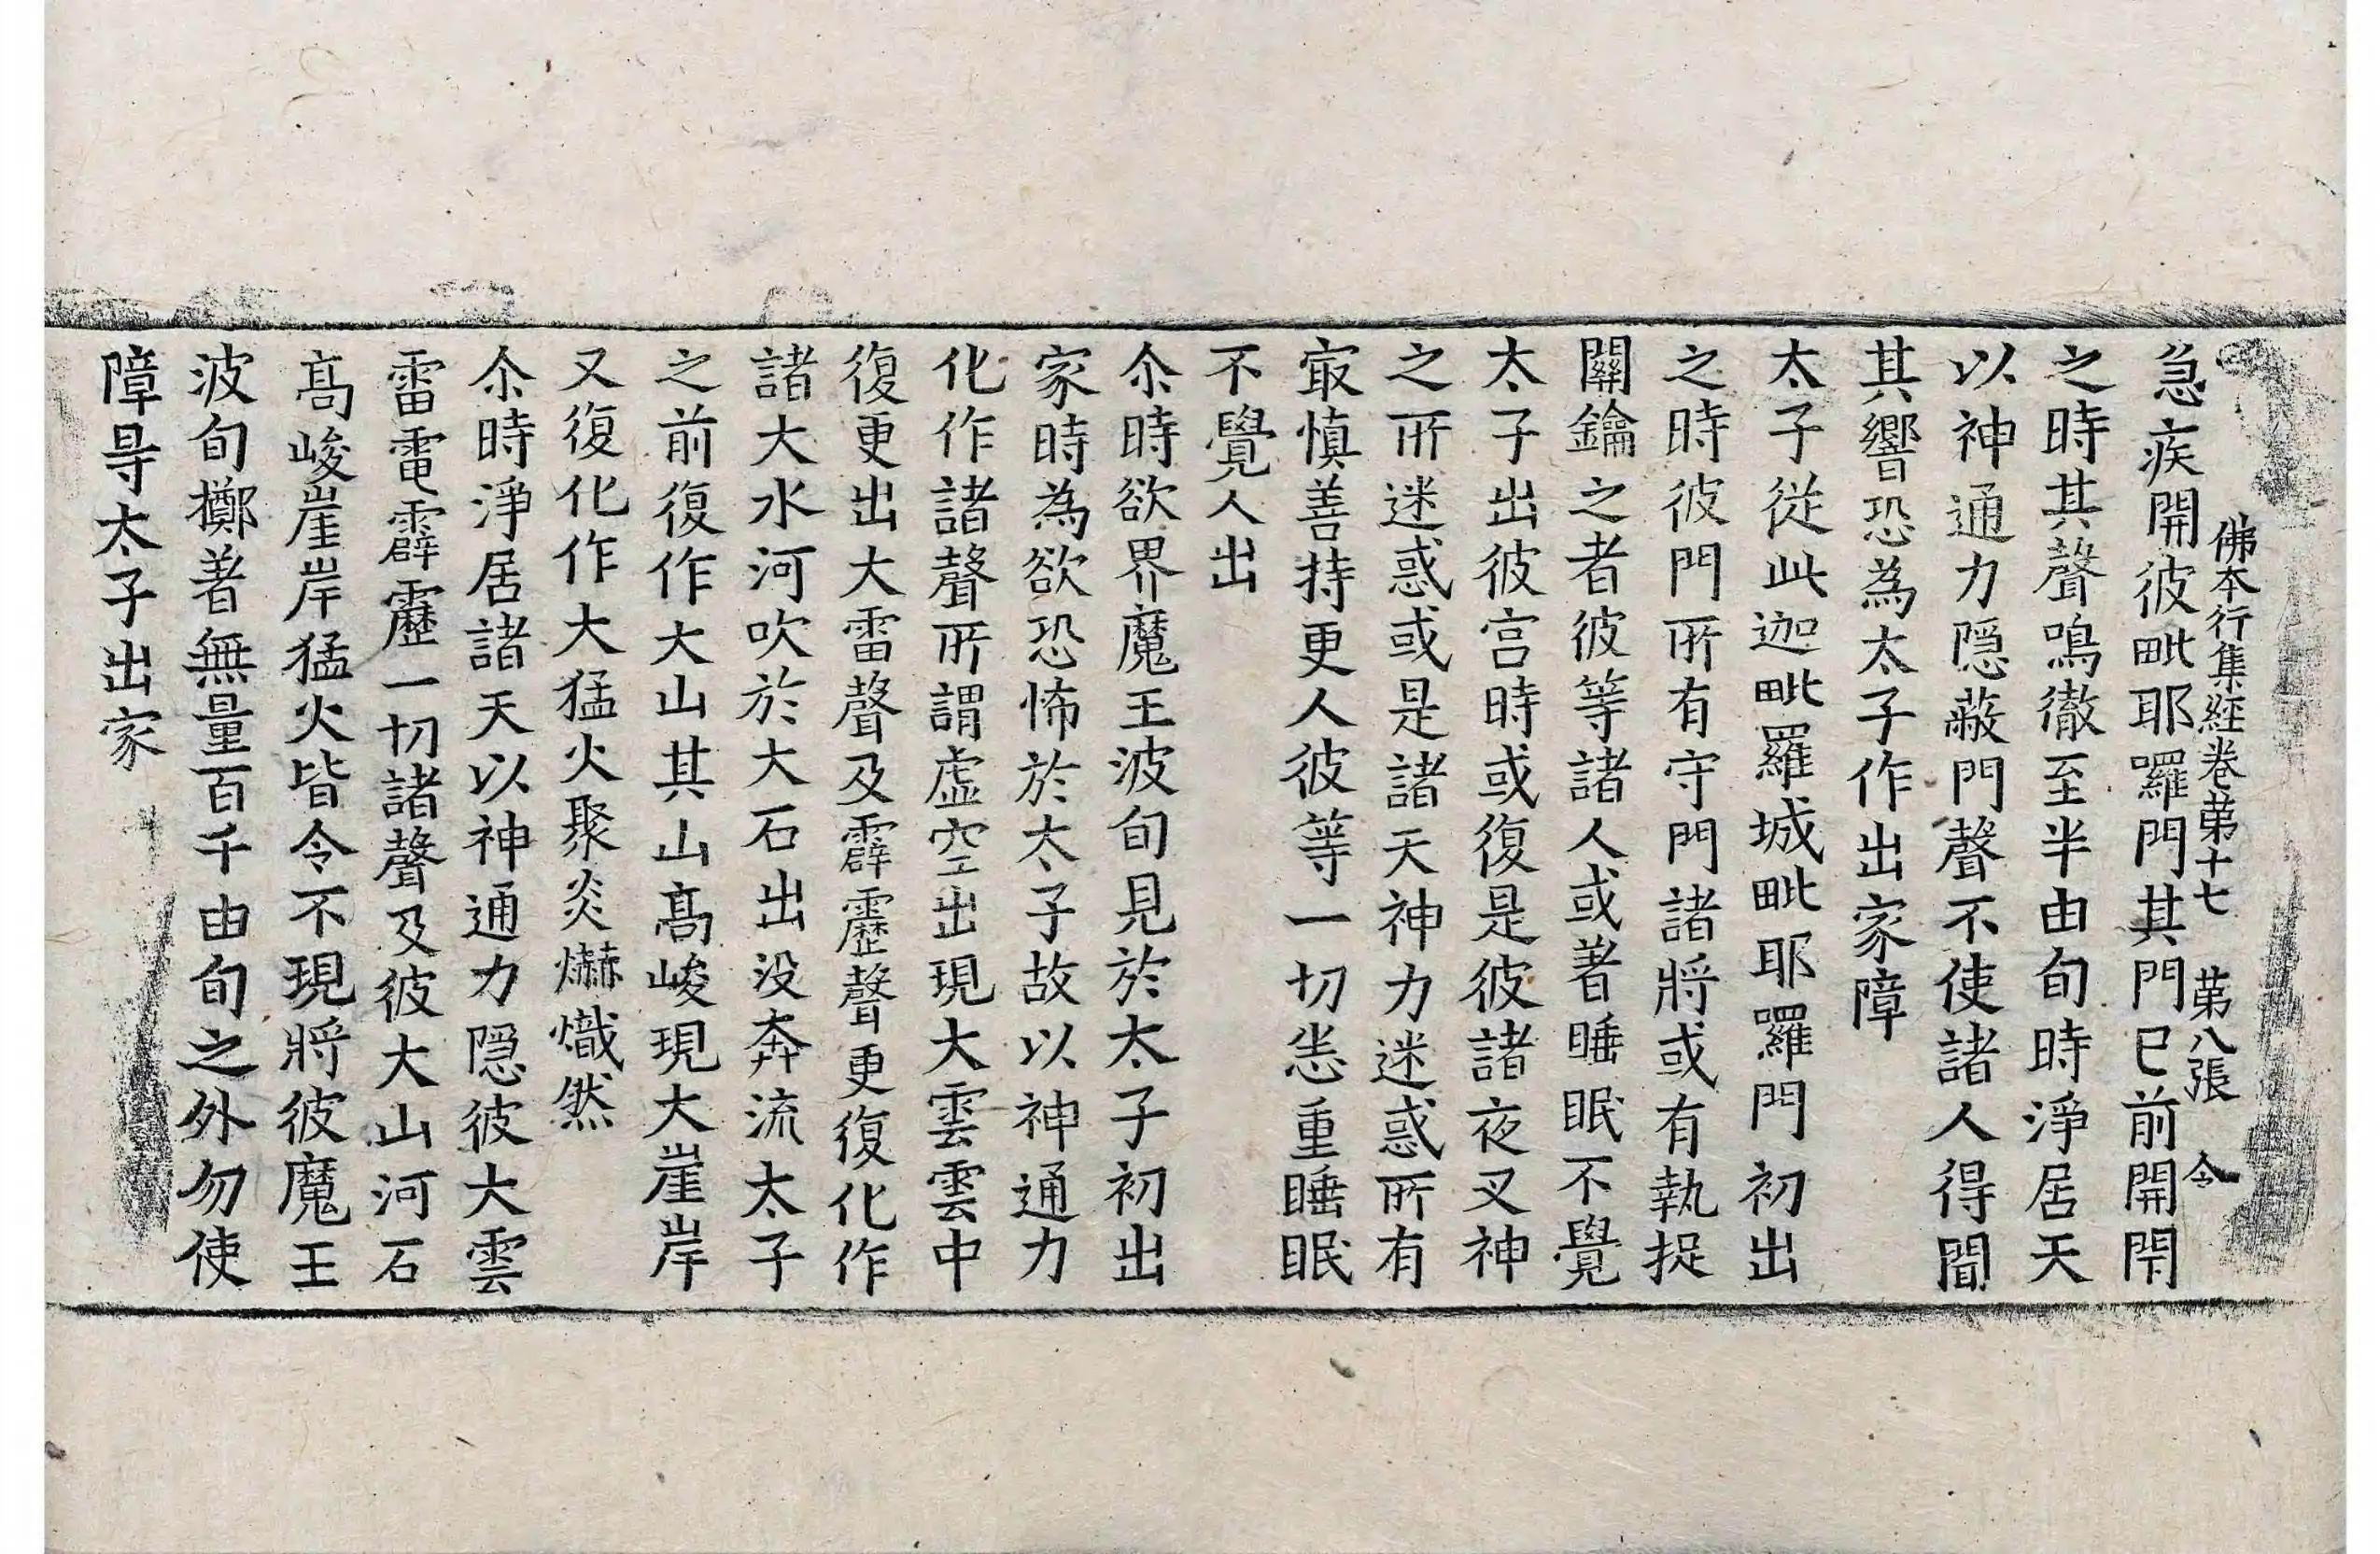 佛本行集經卷苐十七 苐八張 令
急疾開彼毗耶囉門其門已前開閇
之時其聲鳴徹至半由旬時淨居天
以神通力隱蔽門聲不使諸人得聞
其響恐為太子作出家障
太子從此迦毗羅城毗耶囉門初出
之時彼門所有守門諸將或有執捉
關鑰之者彼等諸人或著睡眠不覺
太子出彼宮時或復是彼諸夜叉神
之所迷惑或是諸天神力迷惑所有
㝡慎善持更人彼等一切悉重睡眠
不覺人出
尒時欲界魔王波旬見於太子初出
家時為欲恐怖於太子故以神通力
化作諸聲所謂虛空出現大雲雲中
復更出大雷聲及霹靂聲更復化作
諸大水河吹於大石出没奔流太子
之前復作大山其山髙峻現大崖岸
又復化作大猛火聚炎爀熾然
尒時淨居諸天以神通力隱彼大雲
雷電霹靂一切諸聲及彼大山河石
髙峻崖岸猛火皆令不現將彼魔王
波旬擲著無量百千由旬之外勿使
障㝵太子出家